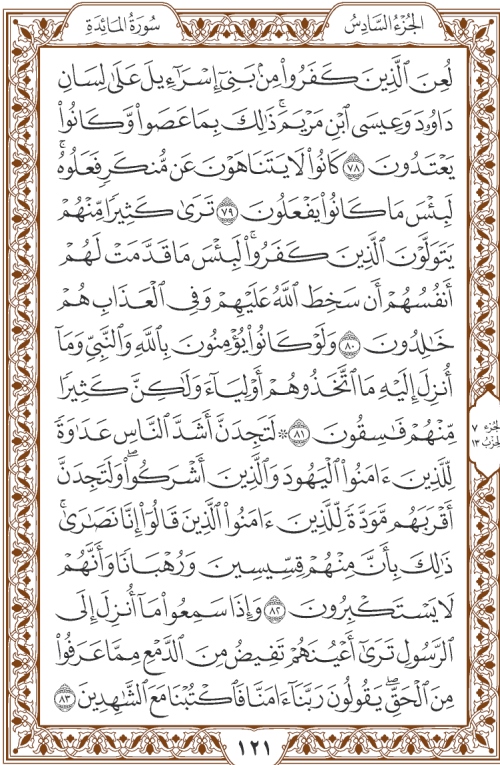 سُورَةُ المَائِدَةِ
الجُزْءُ السَّادِسُ
لُعِنَ ٱلَّذِينَ كَفَرُوا۟ مِنۢ بَنِىٓ إِسْرَٰٓءِيلَ عَلَىٰ لِسَانِ
دَاوُۥدَ وَعِيسَى ٱبْنِ مَرْيَمَ ۚ ذَٰلِكَ بِمَا عَصَوا۟ وَّكَانُوا۟
يَعْتَدُونَ ٧٨ كَانُوا۟ لَا يَتَنَاهَوْنَ عَن مُّنكَرٍ فَعَلُوهُ ۚ
لَبِئْسَ مَا كَانُوا۟ يَفْعَلُونَ ٧٩ تَرَىٰ كَثِيرًا مِّنْهُمْ
يَتَوَلَّوْنَ ٱلَّذِينَ كَفَرُوا۟ ۚ لَبِئْسَ مَا قَدَّمَتْ لَهُمْ
أَنفُسُهُمْ أَن سَخِطَ ٱللَّهُ عَلَيْهِمْ وَفِى ٱلْعَذَابِ هُمْ
خَٰلِدُونَ ٨٠ وَلَوْ كَانُوا۟ يُؤْمِنُونَ بِٱللَّهِ وَٱلنَّبِىِّ وَمَآ
أُنزِلَ إِلَيْهِ مَا ٱتَّخَذُوهُمْ أَوْلِيَآءَ وَلَٰكِنَّ كَثِيرًا
مِّنْهُمْ فَٰسِقُونَ ٨١ ۞ لَتَجِدَنَّ أَشَدَّ ٱلنَّاسِ عَدَٰوَةً
لِّلَّذِينَ ءَامَنُوا۟ ٱلْيَهُودَ وَٱلَّذِينَ أَشْرَكُوا۟ ۖ وَلَتَجِدَنَّ
أَقْرَبَهُم مَّوَدَّةً لِّلَّذِينَ ءَامَنُوا۟ ٱلَّذِينَ قَالُوٓا۟ إِنَّا نَصَٰرَىٰ ۚ
ذَٰلِكَ بِأَنَّ مِنْهُمْ قِسِّيسِينَ وَرُهْبَانًا وَأَنَّهُمْ
لَا يَسْتَكْبِرُونَ ٨٢ وَإِذَا سَمِعُوا۟ مَآ أُنزِلَ إِلَى
ٱلرَّسُولِ تَرَىٰٓ أَعْيُنَهُمْ تَفِيضُ مِنَ ٱلدَّمْعِ مِمَّا عَرَفُوا۟
مِنَ ٱلْحَقِّ ۖ يَقُولُونَ رَبَّنَآ ءَامَنَّا فَٱكْتُبْنَا مَعَ ٱلشَّٰهِدِينَ ٨٣
الجزء ٧
الحزب ١٣
١٢١